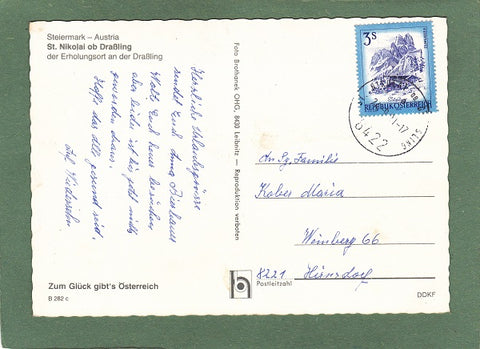 Steiermark – Austria
St. Nikolai ob Draßling
der Erholungsort an der Draßling
Herzliche Urlaubsgrüsse
sendet Euch Anna
Wollt Euch heuer besuchen
aber leider ist bis jetzt nichts
geworden draus.
Hoffe das alle gesund seid.
Auf Wiedersehn
Zum Glück gibt's Österreich
B 282 c
Foto Brothanek OHG, 8430 Leibnitz – Reproduktion verboten
3S
REPUBLIK ÖSTERREICH
8422
An Fg. Familie
Kober Maria
Weinberg 66
8221 Hirnsdorf
Postleitzahl
DDKF